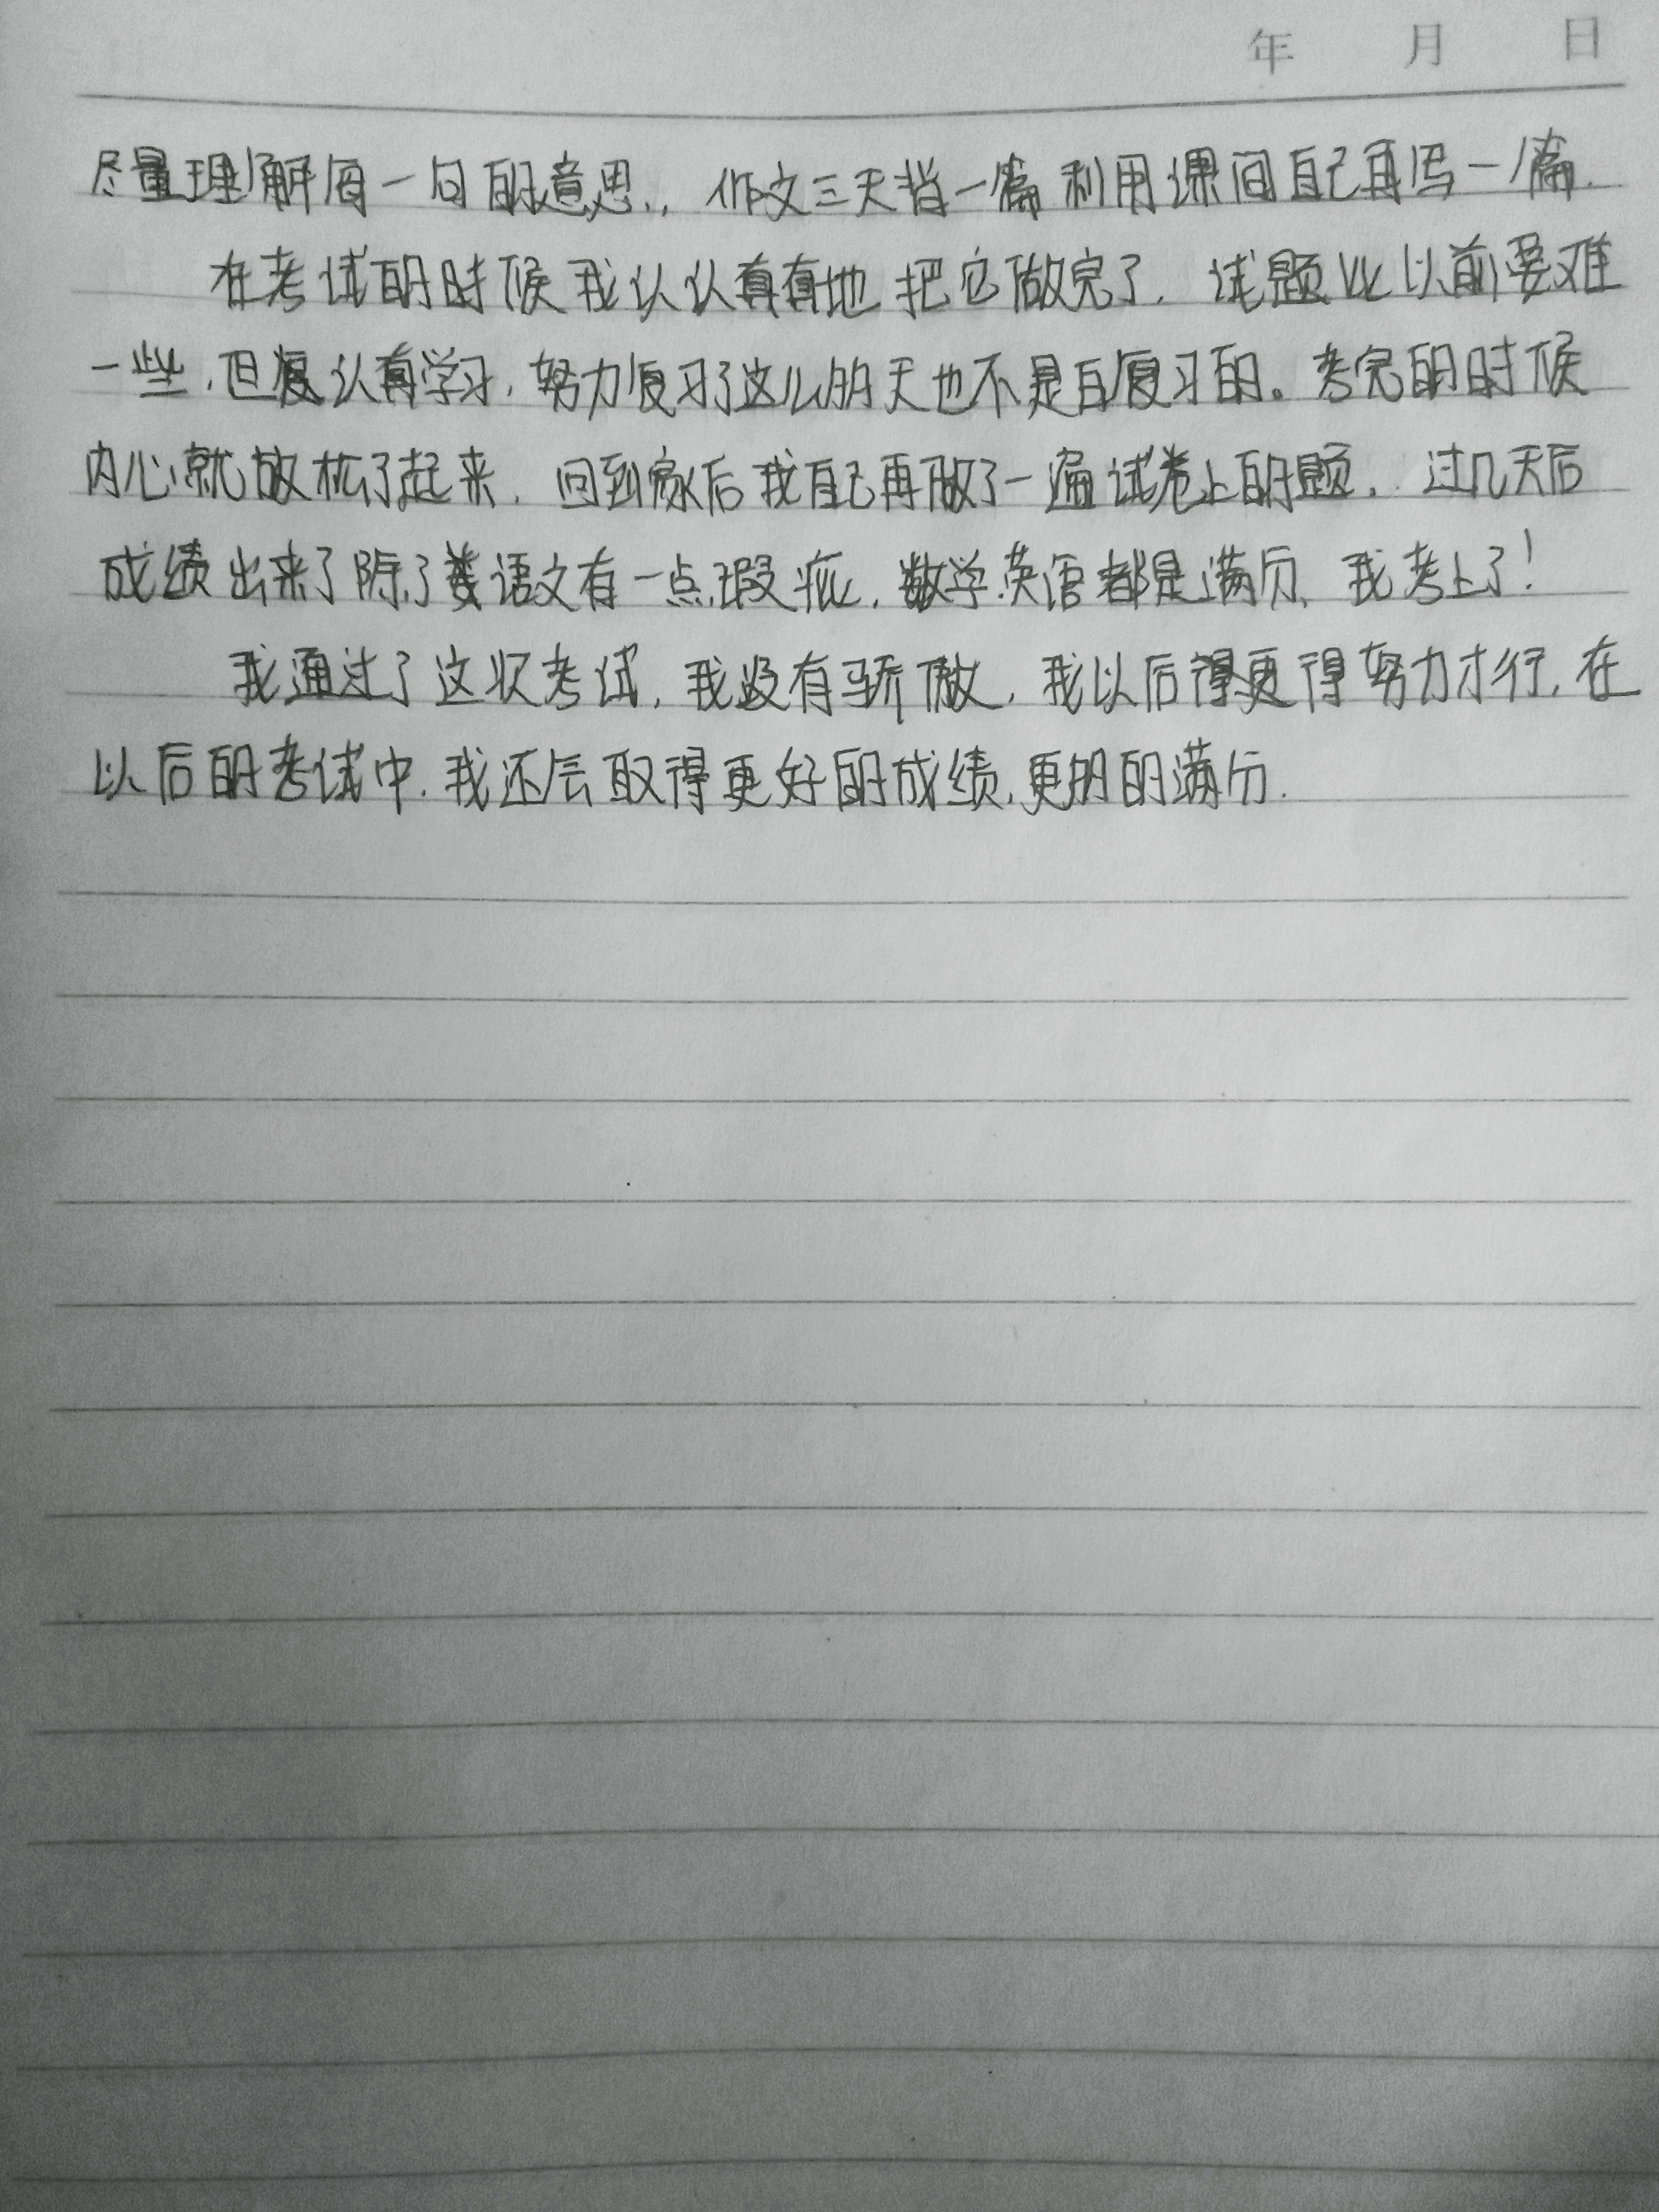 年 月 日
尽量理解每一句的意思., 作文三天背一篇利用课间自己再写一篇.
在考试的时候我认认真真地把它做完了. 试题比以前要难
一些.但认真学习.努力复习了这么多天也不是白复习的。考完的时候
内心就放松了起来.回到家后我自己再做了一遍试卷上的题. 过几天后
成绩出来了除了语文有一点瑕疵.数学.英语都是满分,我考上了!
我通过了这次考试.我没有骄傲.我以后得更得努力才行.在
以后的考试中.我还会取得更好的成绩.更多的满分.